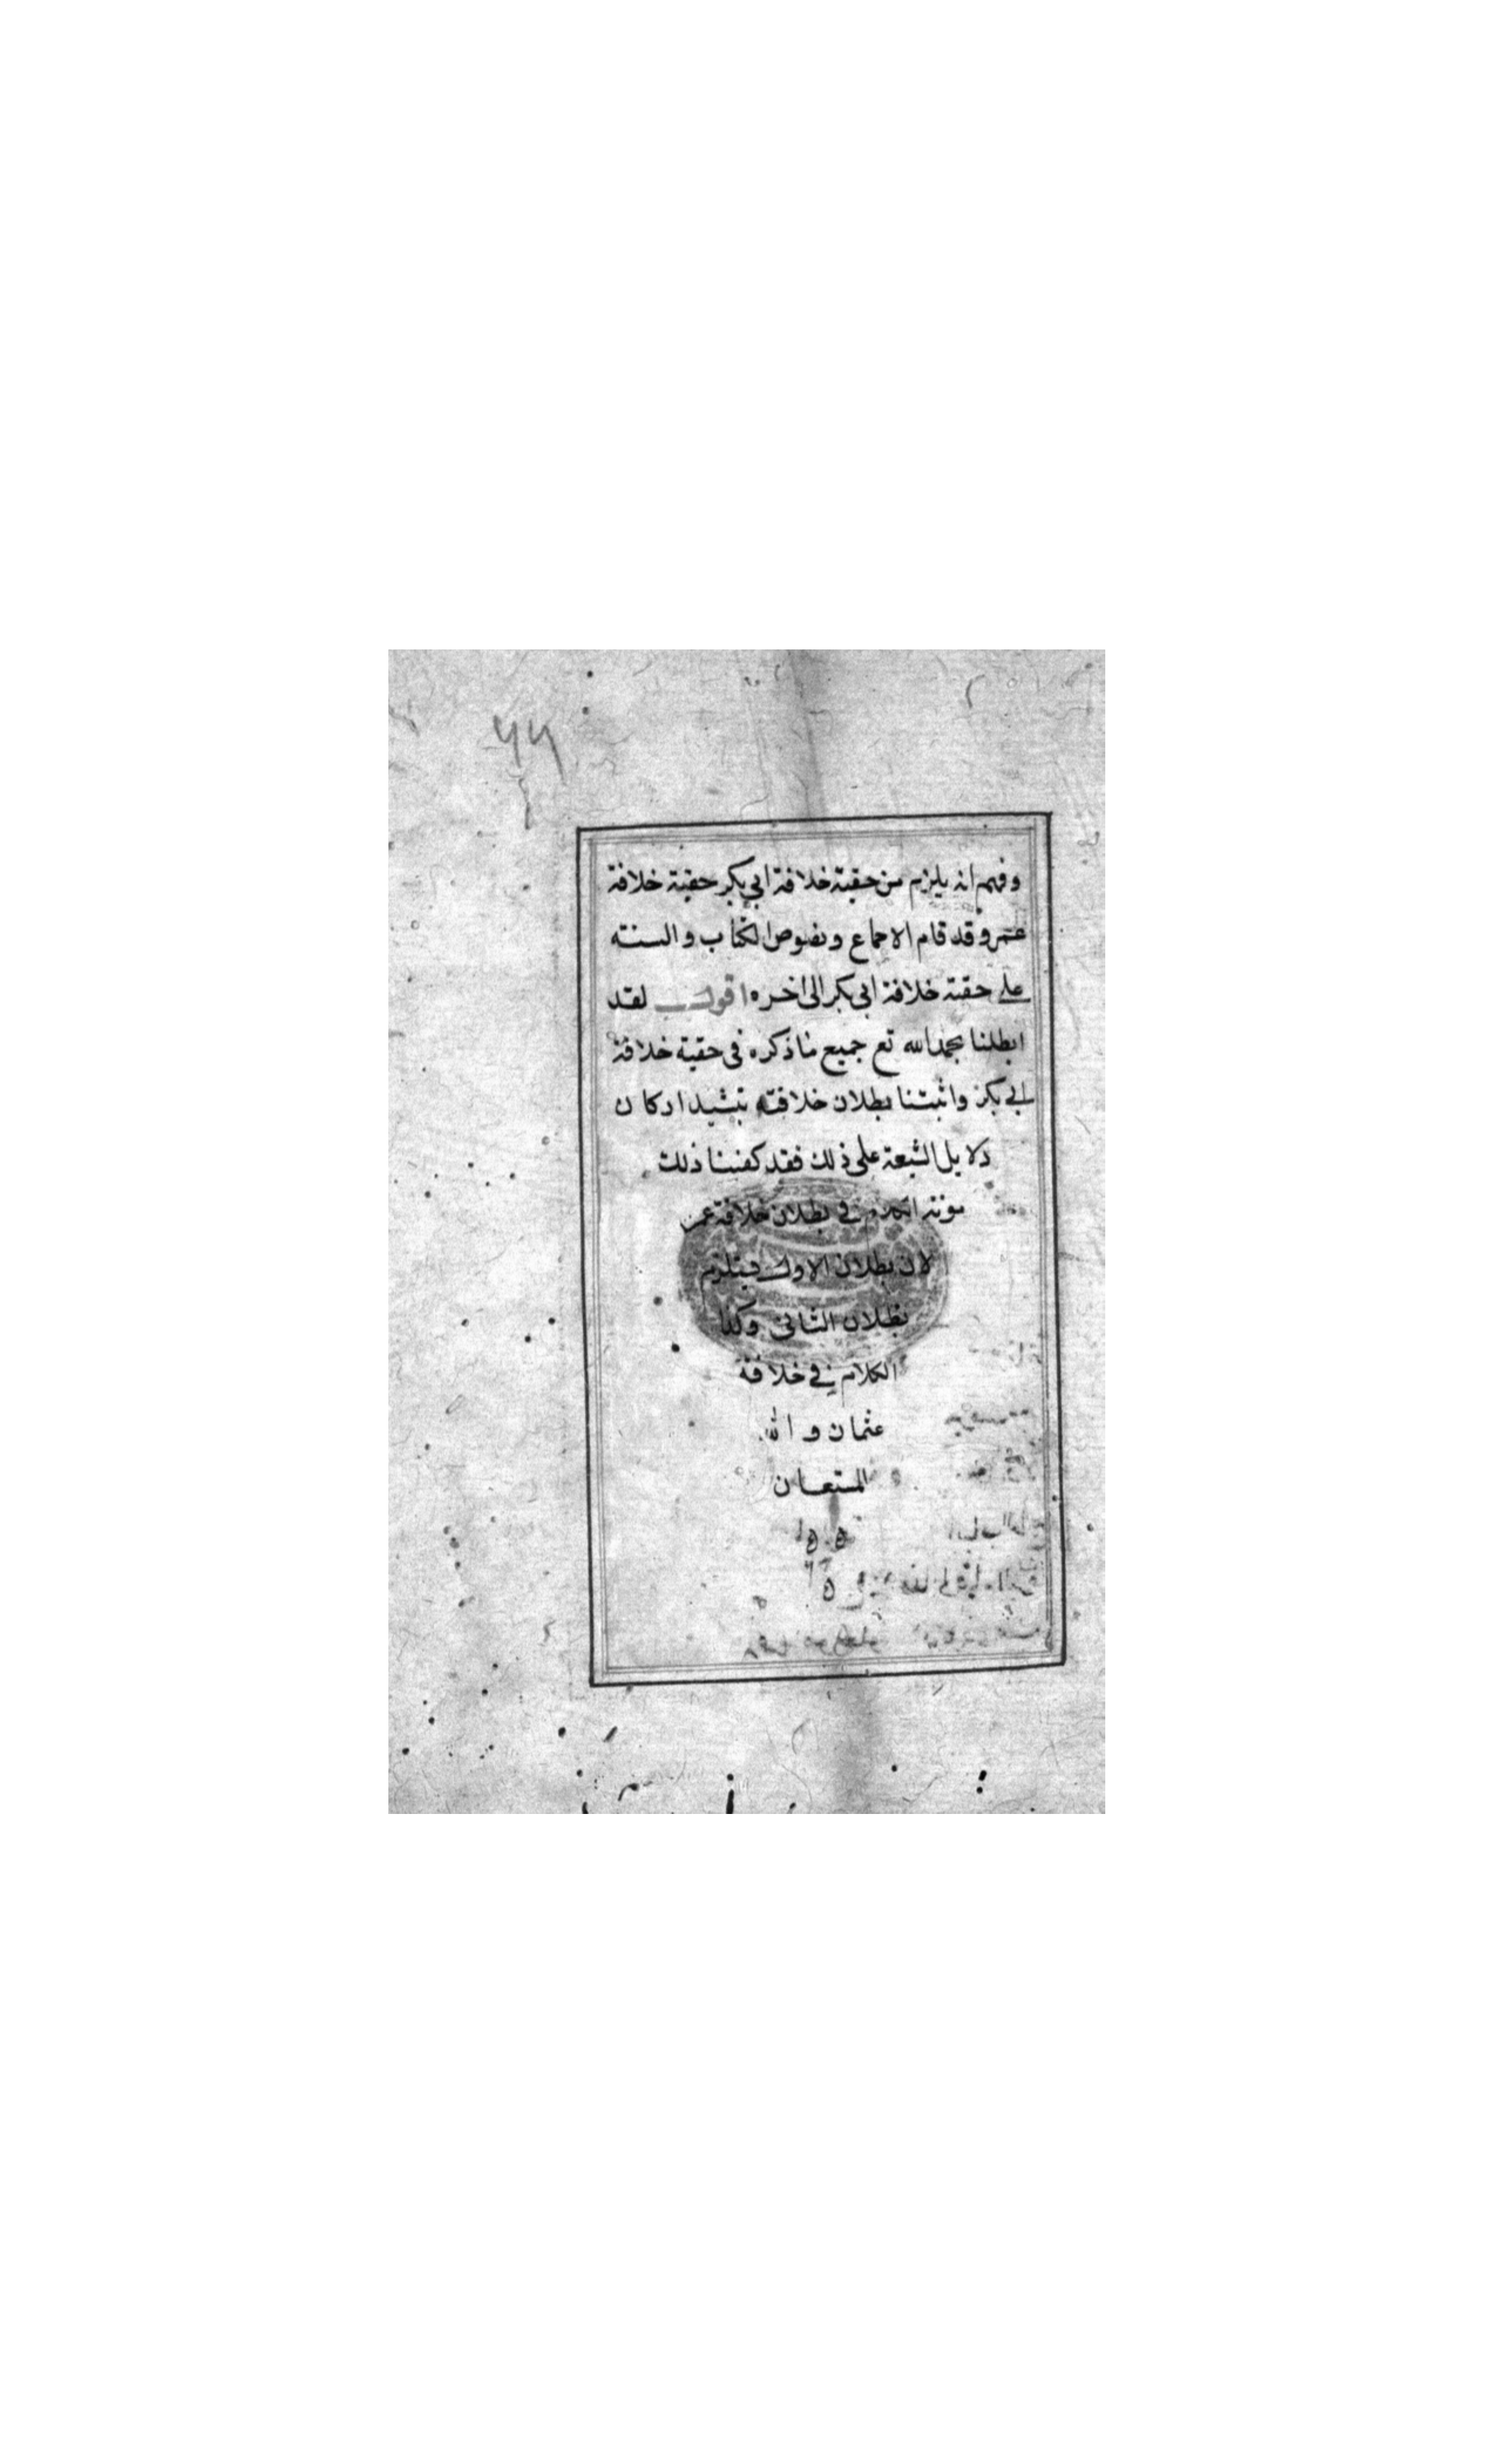 وفهم انه يلزم من حقية خلافة ابي بكر حقية خلافة
عمر وقد قام الاجماع ونصوص الكتاب والسنته
على حقية خلافة ابي بكر الى اخره اقول لقد
ابطلنا بحمد الله تع جميع ما ذكره في حقية خلافة
ابي بكر واثبتنا بطلان خلافته بتشييد اركان
دلايل الشيعة على ذلك فقد كفينا ذلك
مونة الكلام في بطلان خلافة عمر
لان بطلان الاول يستلزم
بطلان الثاني وكذا
الكلام في خلافة
عثمان والله
المستعان